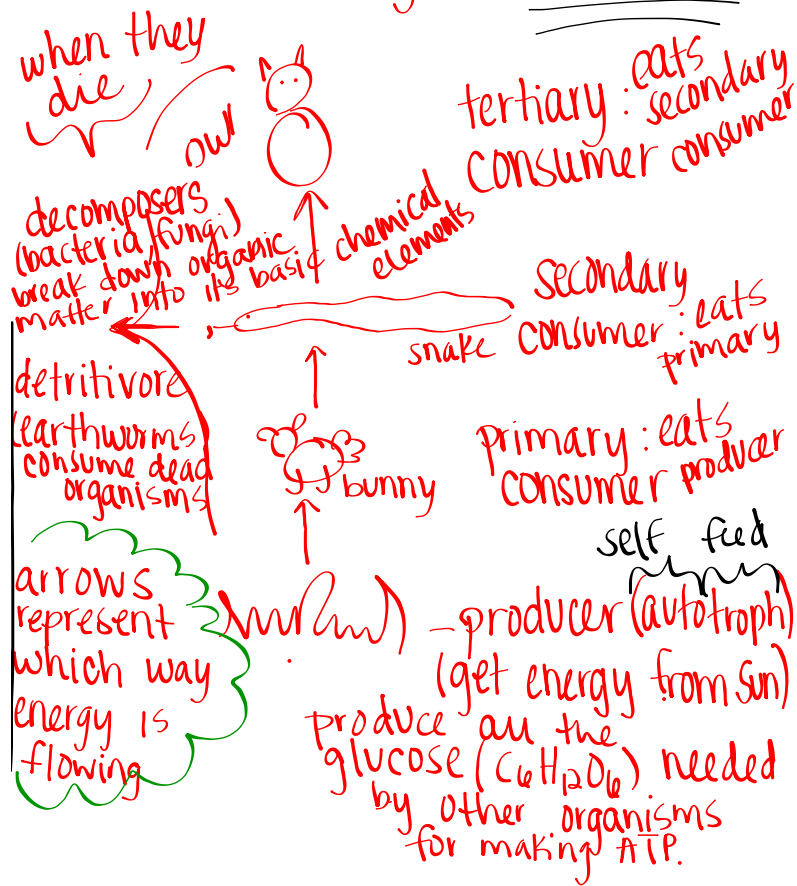 when they
die
owl
tertiary : eats
secondary
consumer consumer
decomposers
(bacteria/fungi)
break down organic
matter into it's basic chemical
elements
secondary
consumer : eats
primary
snake
detritivore
(earthworms
consume dead
organisms
primary : eats
consumer producer
bunny
self feed
arrows
represent
which way
energy is
flowing
- producer (autotroph)
(get energy from sun)
produce all the
glucose (C6H12O6) needed
by other organisms
for making ATP.